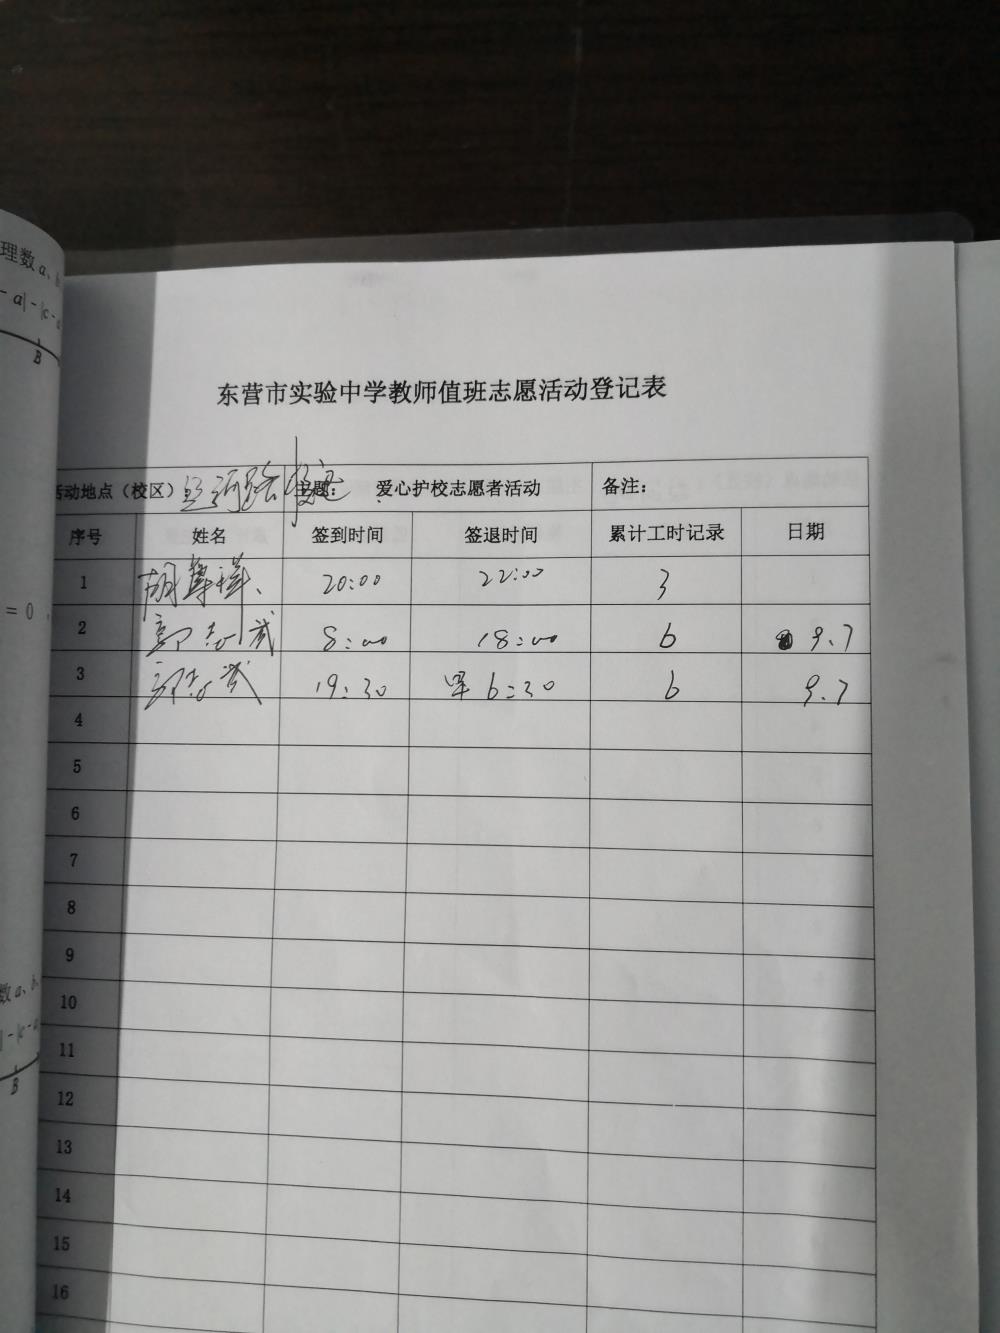 理数a、b
- a| - |c - a
B
= 0
数a、b、
| - |c - a
B
东营市实验中学教师值班志愿活动登记表
活动地点（校区） 路校区 主题： 爱心护校志愿者活动 备注：
序号 姓名 签到时间 签退时间 累计工时记录 日期
1 胡 20:00 22:00 3
2 郭志武 8:00 18:00 6 9.7
3 郭志武 19:30 早6:30 6 9.7
4
5
6
7
8
9
10
11
12
13
14
15
16